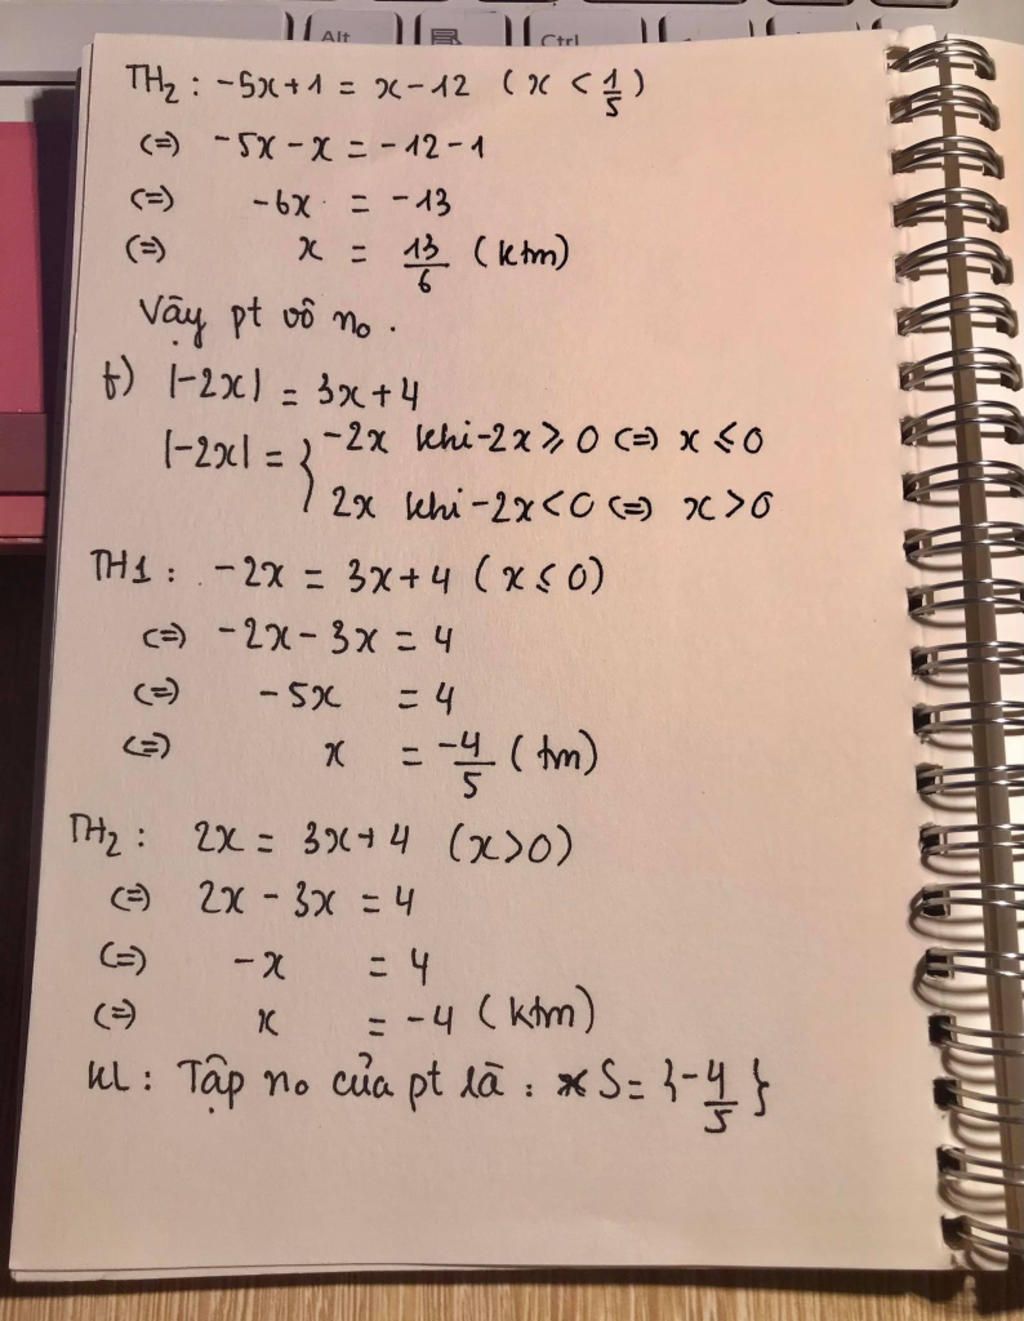 Alt
Ctrl
TH2 : -5x+1 = x-12 ( x < 1/5 )
<=> -5x - x = -12 - 1
<=> -6x = -13
<=> x = 13/6 (ktm)
Vậy pt vô no.
f) |-2x| = 3x+4
|-2x| = { -2x khi -2x ≥ 0 <=> x ≤ 0
2x khi -2x < 0 <=> x > 0
TH1 : -2x = 3x+4 ( x ≤ 0 )
<=> -2x - 3x = 4
<=> -5x = 4
<=> x = -4/5 ( tm )
TH2 : 2x = 3x+4 (x>0)
<=> 2x - 3x = 4
<=> -x = 4
<=> x = -4 ( ktm )
KL : Tập no của pt là : S = { -4/5 }